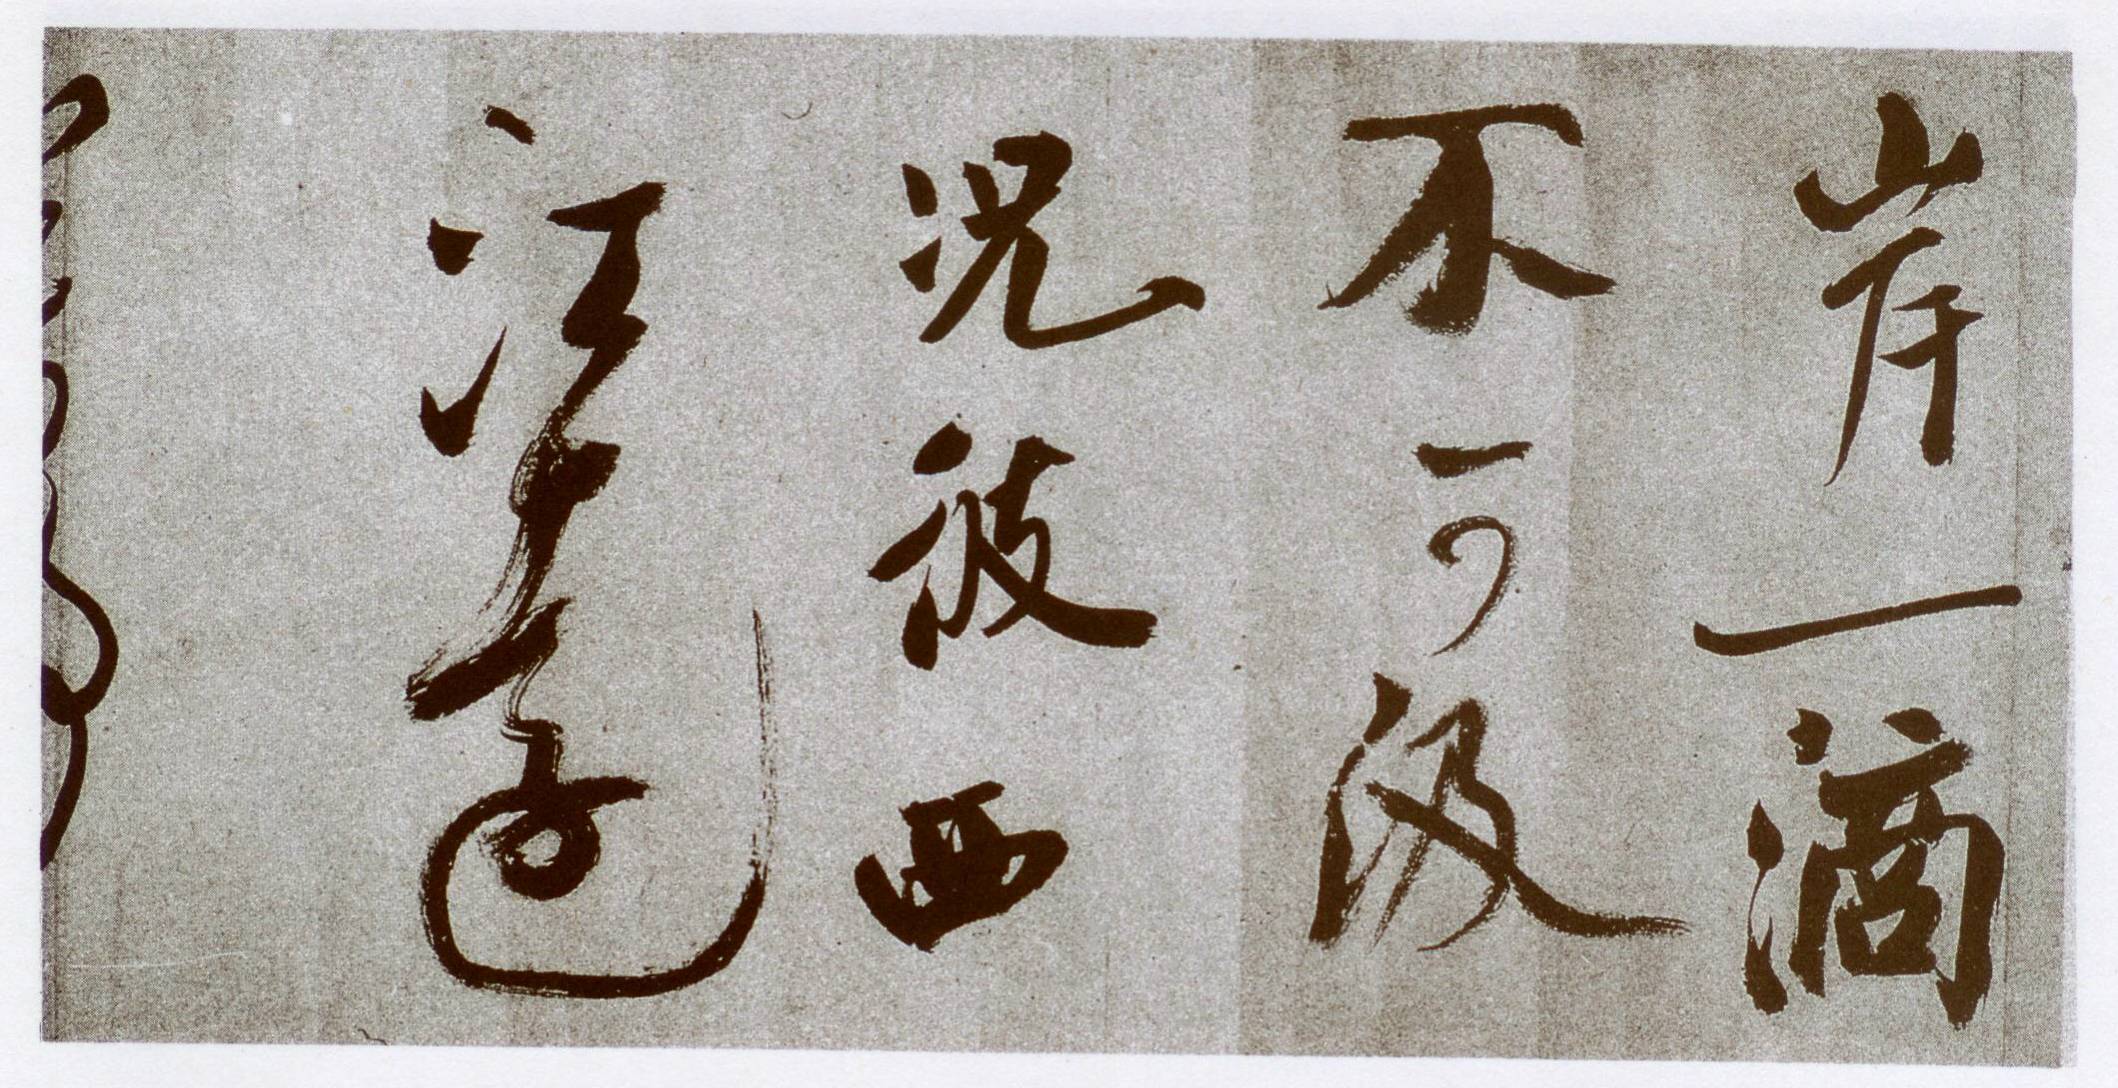 岸一滴
不可汲
况彼西
江遠